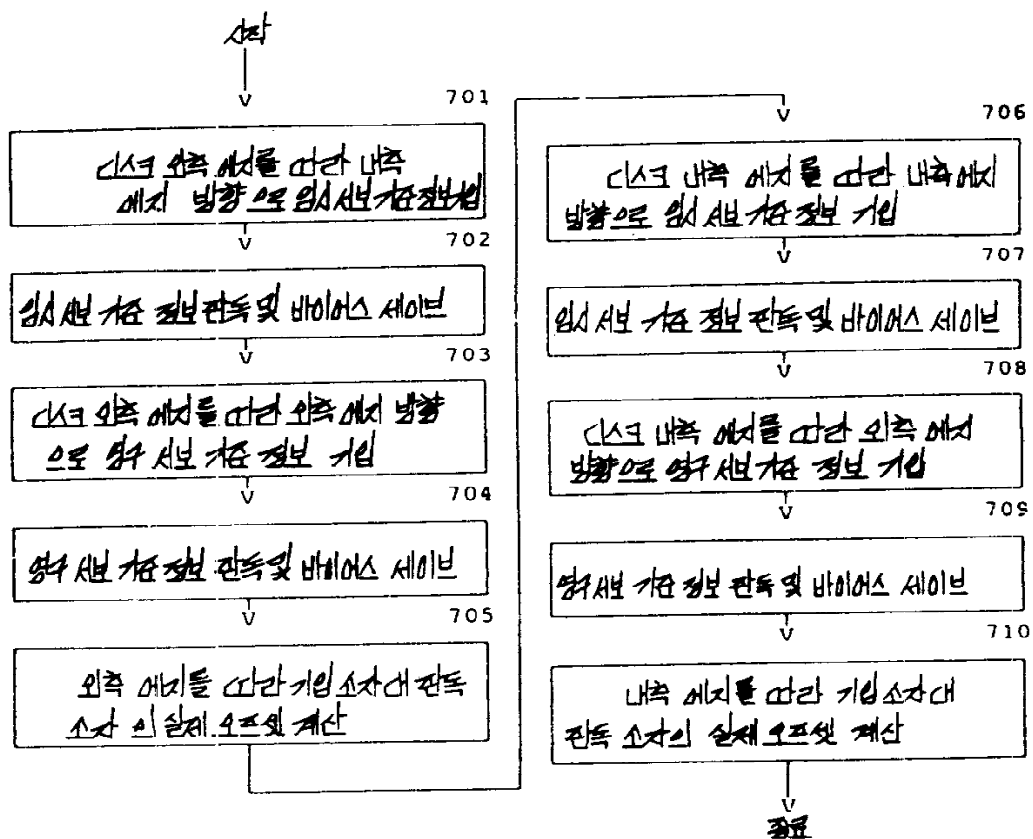 시작
701
디스크 외측 에지를 따라 내측
에지 방향으로 임시 서보 기준 정보 기입
702
임시 서보 기준 정보 판독 및 바이어스 세이브
703
디스크 외측 에지를 따라 외측 에지 방향
으로 영구 서보 기준 정보 기입
704
영구 서보 기준 정보 판독 및 바이어스 세이브
705
외측 에지를 따라 기입 소자 대 판독
소자의 실제 오프셋 계산
706
디스크 내측 에지를 따라 내측 에지
방향으로 임시 서보 기준 정보 기입
707
임시 서보 기준 정보 판독 및 바이어스 세이브
708
디스크 내측 에지를 따라 외측 에지
방향으로 영구 서보 기준 정보 기입
709
영구 서보 기준 정보 판독 및 바이어스 세이브
710
내측 에지를 따라 기입 소자 대
판독 소자의 실제 오프셋 계산
종료